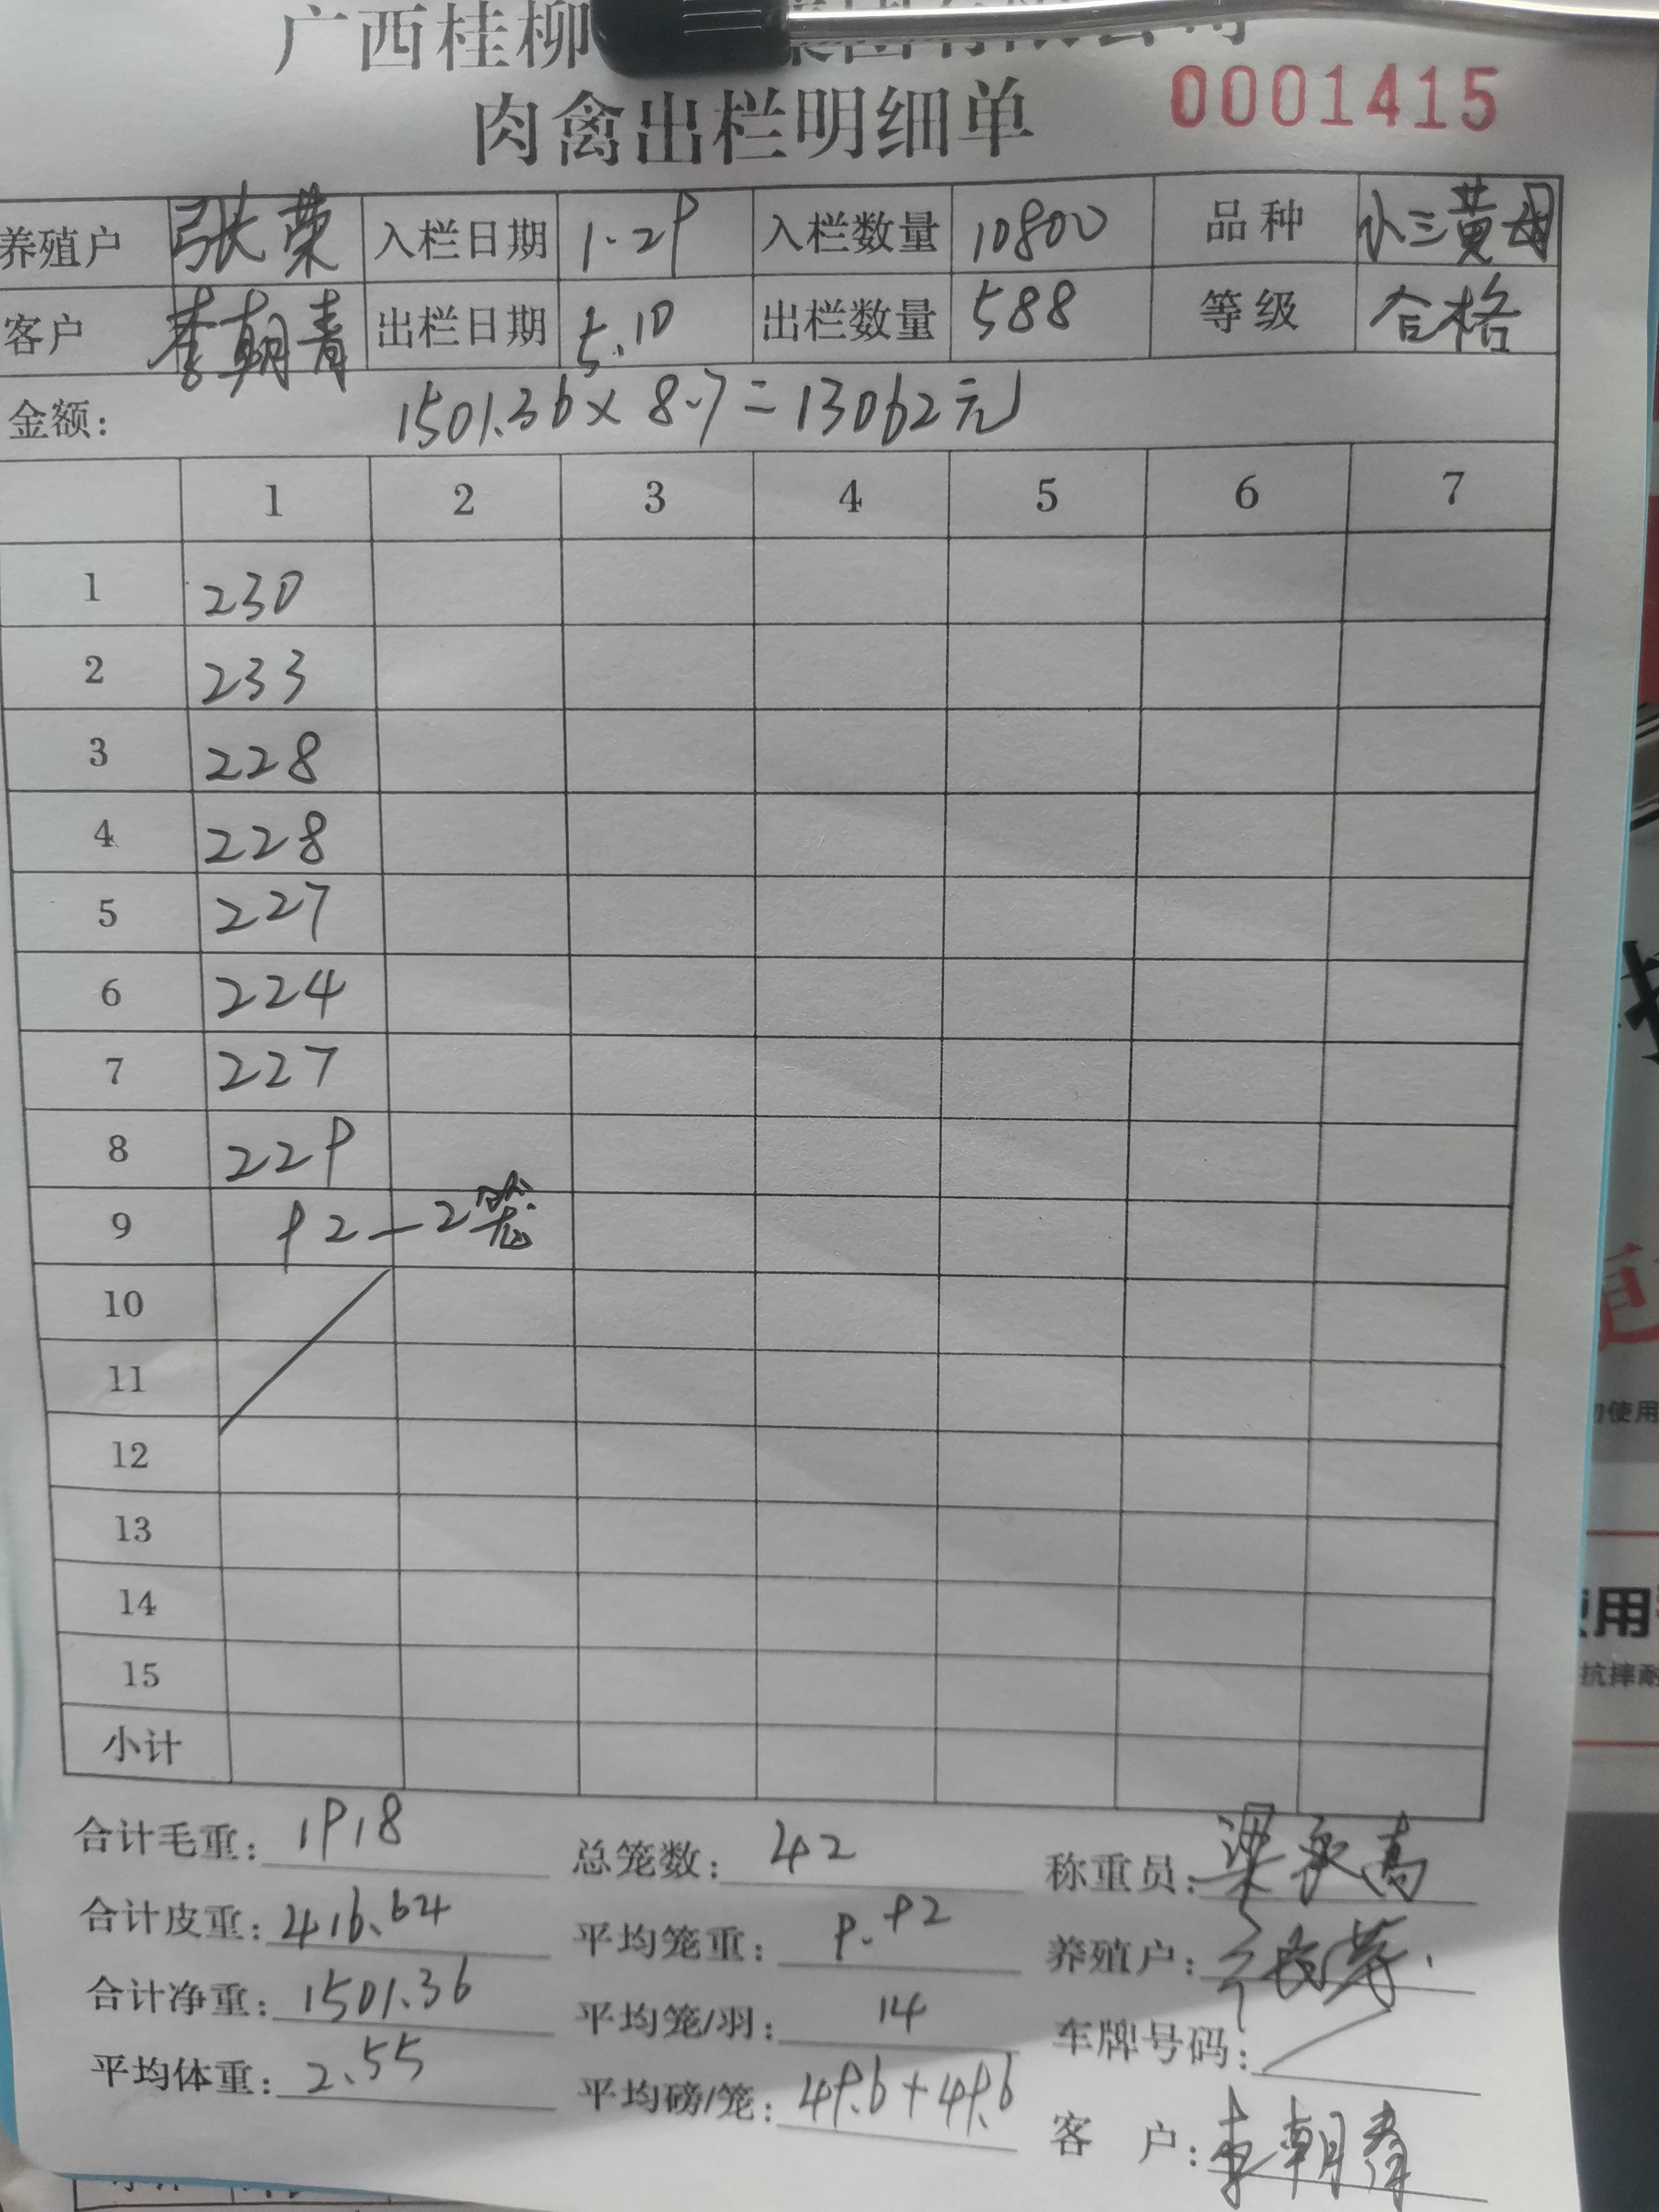 广西桂柳 集团有限公司
肉禽出栏明细单 0001415
养殖户 张荣 入栏日期 1.29 入栏数量 10800 品种 小三黄母
客户 李朝青 出栏日期 5.10 出栏数量 588 等级 合格
金额: 1501.36×8.7=13062元
1 2 3 4 5 6 7
1 230
2 233
3 228
4 228
5 227
6 224
7 227
8 229
9 92—2笼
10
11
12
13
14
15
小计
合计毛重: 1918 总笼数: 42 称重员:
合计皮重: 416.64 平均笼重: 9.92 养殖户: 张荣
合计净重: 1501.36 平均笼/羽: 14 车牌号码:
平均体重: 2.55 平均磅/笼: 49.6+49.6 客户: 李朝青
使用
使用
抗摔耐